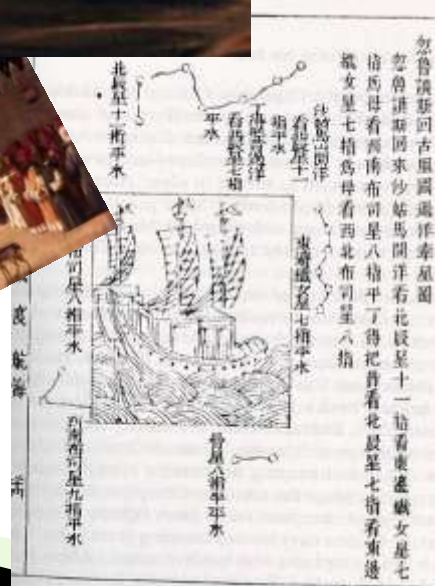 忽魯謨斯回古里國過洋牽星圖
忽魯謨斯回來沙姑馬開洋看北辰星十一指看東邊織女星七
指爲母看西南布司星八指平丁得把昔看北辰星七指看東邊
織女星七指爲母看西北布司星八指
沙姑馬山開洋
看北辰星十一
指平水
看北辰星七指
平水
北辰星十一指平水
東邊織女星七指平水
布司星八指平水
西南布司星九指平水
骨星八指半平水
航海